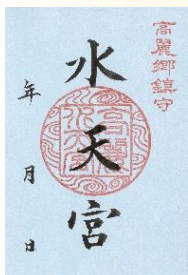 高麗郷鎮守
水天宮
年　月　日